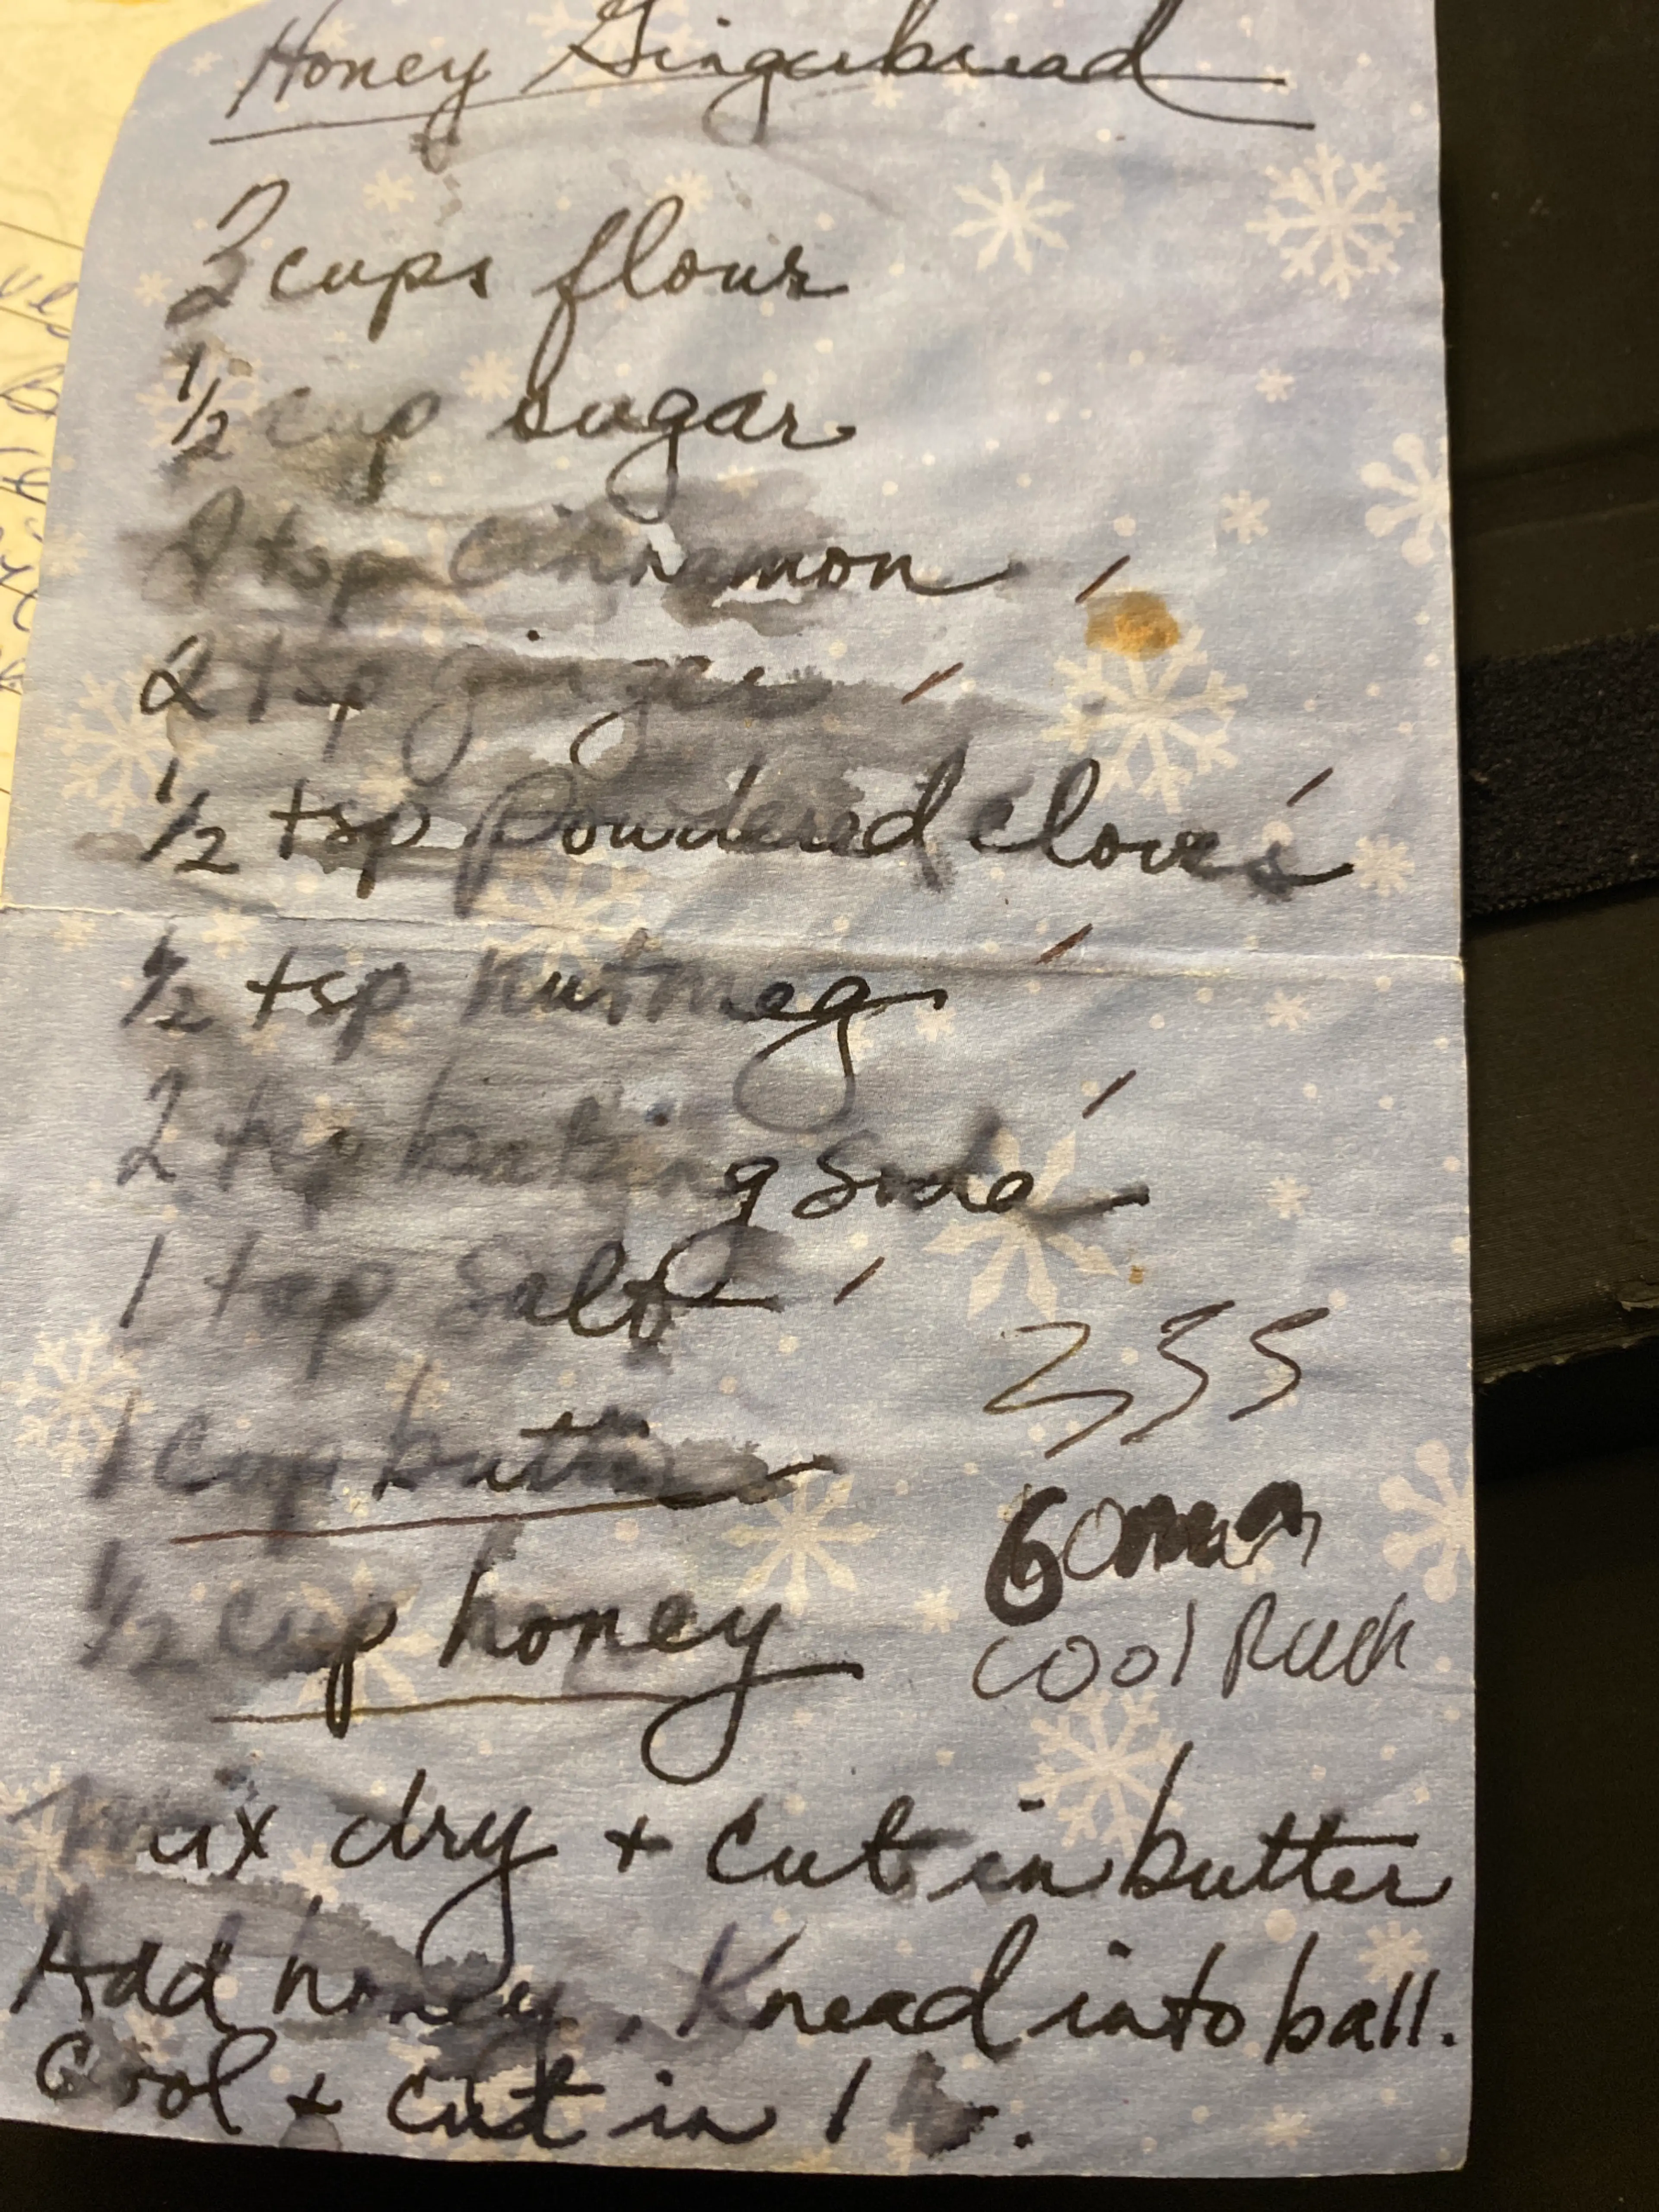 Honey Gingerbread
cups flour
1/2 cup sugar
2 tsp cinnamon
2 tsp ginger
1/2 tsp Powdered cloves
1/2 tsp nutmeg
2 tsp baking soda
1 tsp salt
1 cup butter
1/2 cup honey
Cool Rack
Mix dry + cut in butter
Add honey. Knead into ball.
Cool + cut in 1